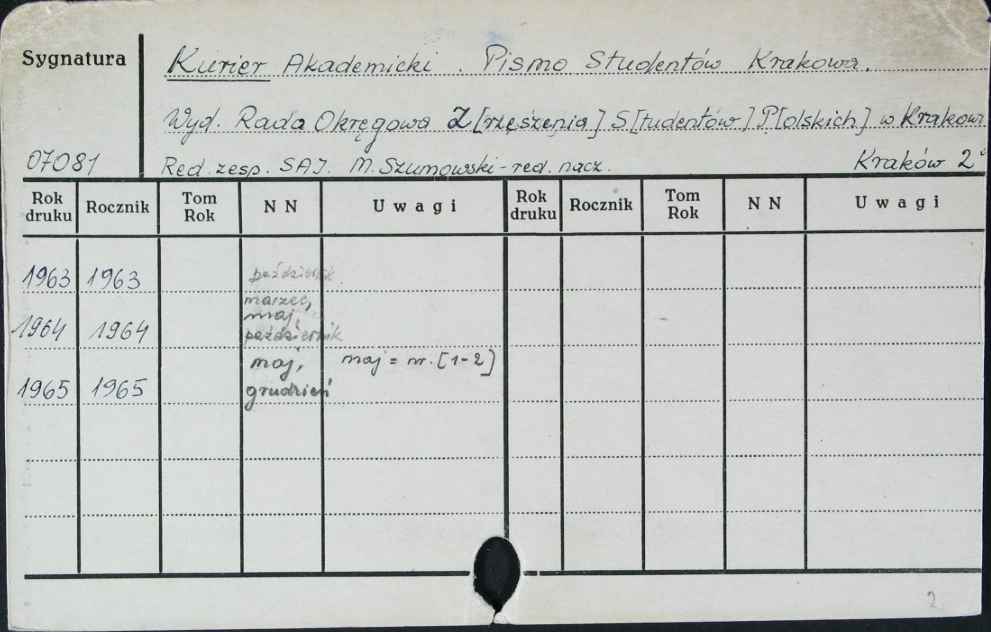 Sygnatura
Kurier Akademicki. Pismo Studentów Krakowa.
Wyd. Rada Okręgowa Z[rzeszenia] S[tudentów] P[olskich] w Krakowi
07081
Red. zesp. SAJ. M. Szumowski - red. nacz. Kraków 2°
Rok druku Rocznik Tom Rok NN Uwagi Rok druku Rocznik Tom Rok NN Uwagi
1963 1963 październik
marzec,
maj,
1964 1964 październik
maj, maj = nr. [1-2]
1965 1965 grudzień
2